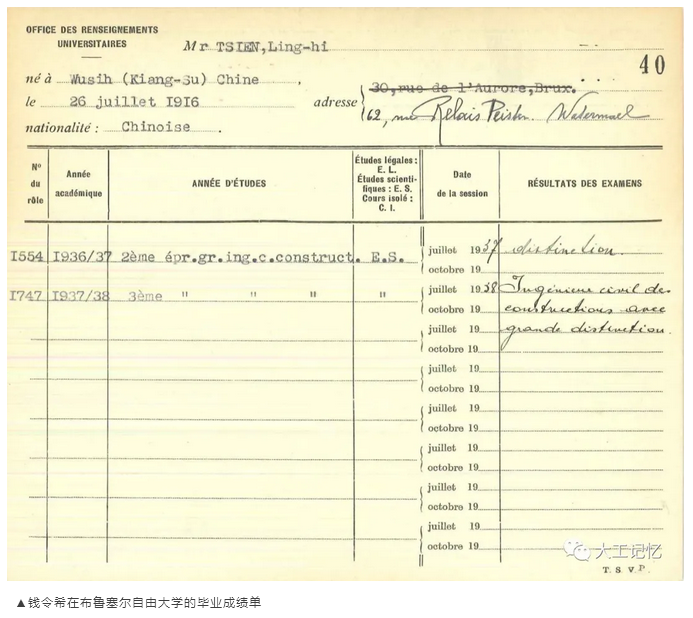 OFFICE DES RENSEIGNEMENTS
UNIVERSITAIRES
Mr TSIEN,Ling-hi
40
né à Wusih (Kiang-Su) Chine .
le 26 juillet I9I6
nationalité : Chinoise .
adresse
30,rue de l'Aurore,Brux.
62, rue Relais Watermael
N° du rôle
Année académique
ANNÉE D'ÉTUDES
Études légales : E. L. Études scientifiques : E. S. Cours isolé : C. I.
Date de la session
RÉSULTATS DES EXAMENS
I554 I936/37 2ème épr.gr.ing.c.construct. E.S. juillet 1937 distinction.
octobre 19
I747 I937/38 3ème " " " " juillet 1938 Ingénieur civil des
octobre 19 constructions avec
juillet 19 grande distinction.
octobre 19
juillet 19
octobre 19
juillet 19
octobre 19
juillet 19
octobre 19
juillet 19
octobre 19
juillet 19
octobre 19
大工记忆
T. S. V. P.
▲钱令希在布鲁塞尔自由大学的毕业成绩单